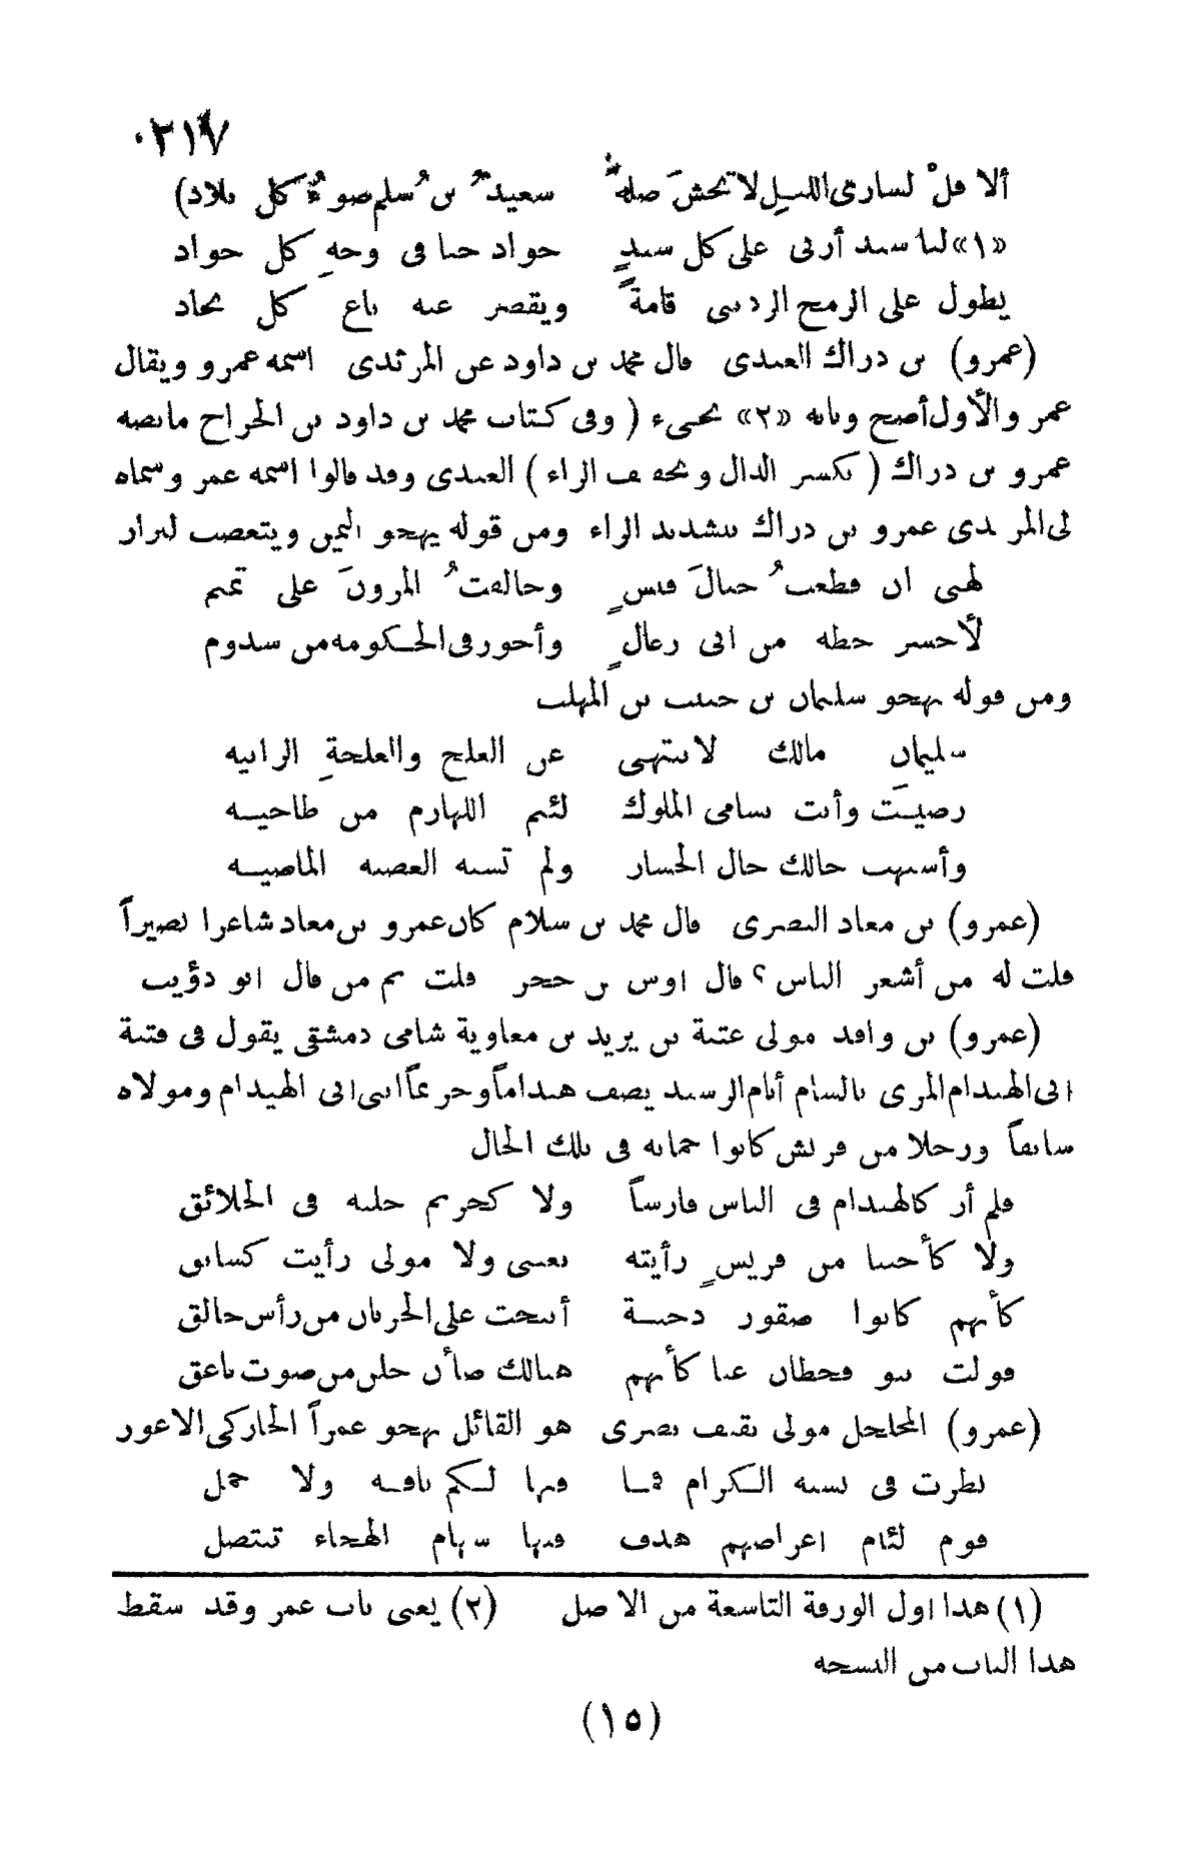 ٠٢١٧
ألا قلْ لساري الليلِ لا تخشَ ضلةً سعيدُ بنُ سلمٍ ضوءُ كل بلاد)
«١» لنا سيد أربى على كل سيدٍ جواد حثا في وجهِ كل جواد
يطول على الرمح الرديني قامةً ويقصر عنه باع كل نجاد
(عمرو) بن دراك العبدى قال محمد بن داود عن المرثدى اسمه عمرو ويقال
عمر والأول أصح وبابه «٢» يجىء ( وفى كتاب محمد بن داود بن الجراح ما نصه
عمرو بن دراك ( بكسر الدال وتخفيف الراء ) العبدى وقد قالوا اسمه عمر وسماه
لى المرثدى عمرو بن دراك بتشديد الراء ومن قوله يهجو اليمن ويتعصب لنزار
لهنى ان قطعتُ حبالَ قيسٍ وحالفتُ المرونَ على تميم
لأخسر خطة من ابى رغالٍ وأجور فى الحكومة من سدوم
ومن قوله يهجو سليمان بن حبيب بن المهلب
سليمان مالك لا تنتهى عن العلج والعلجةِ الزانيه
رضيتَ وأنت تسامى الملوك لئيم اللهازم من طاحيــه
وأشبهت خالك خال الخسار ولم تشبه العصبة الماضيــه
(عمرو) بن معاذ البصرى قال محمد بن سلام كان عمرو بن معاذ شاعرا بصيراً
قلت له من أشعر الناس ؟ قال اوس بن حجر قلت ثم من قال ابو ذؤيب
(عمرو) بن واقد مولى عتبة بن يزيد بن معاوية شامى دمشقى يقول فى فتنة
ابى الهيذام المرى بالشام أيام الرشيد يصف هيذاماً وخريماً ابنى ابى الهيذام ومولاه
سابقاً ورجلا من قريش كانوا حماته فى تلك الحال
فلم أر كالهيذام فى الناس فارساً ولا كخريم حلبه فى الخلائق
ولا كأخينا من قريشٍ رأيته بعينى ولا مولى رأيت كسابق
كأنهم كانوا صقور دجنــة أتيحت على الخربان من رأس حالق
فولت بنو قحطان عنا كأنهم هنالك ضأن جلن من صوت ناعق
(عمرو) المخلخل مولى ثقيف بصرى هو القائل يهجو عمراً الخاركى الاعور
نظرت فى نسبة الكرام فمــا فيها لكم ناقــة ولا جمل
قوم لئام اعراضهم هدف فيها سهام الهجاء تنتصل
(١) هذا اول الورقة التاسعة من الاصل (٢) يعنى باب عمر وقد سقط
هذا الباب من النسخة
(١٥)